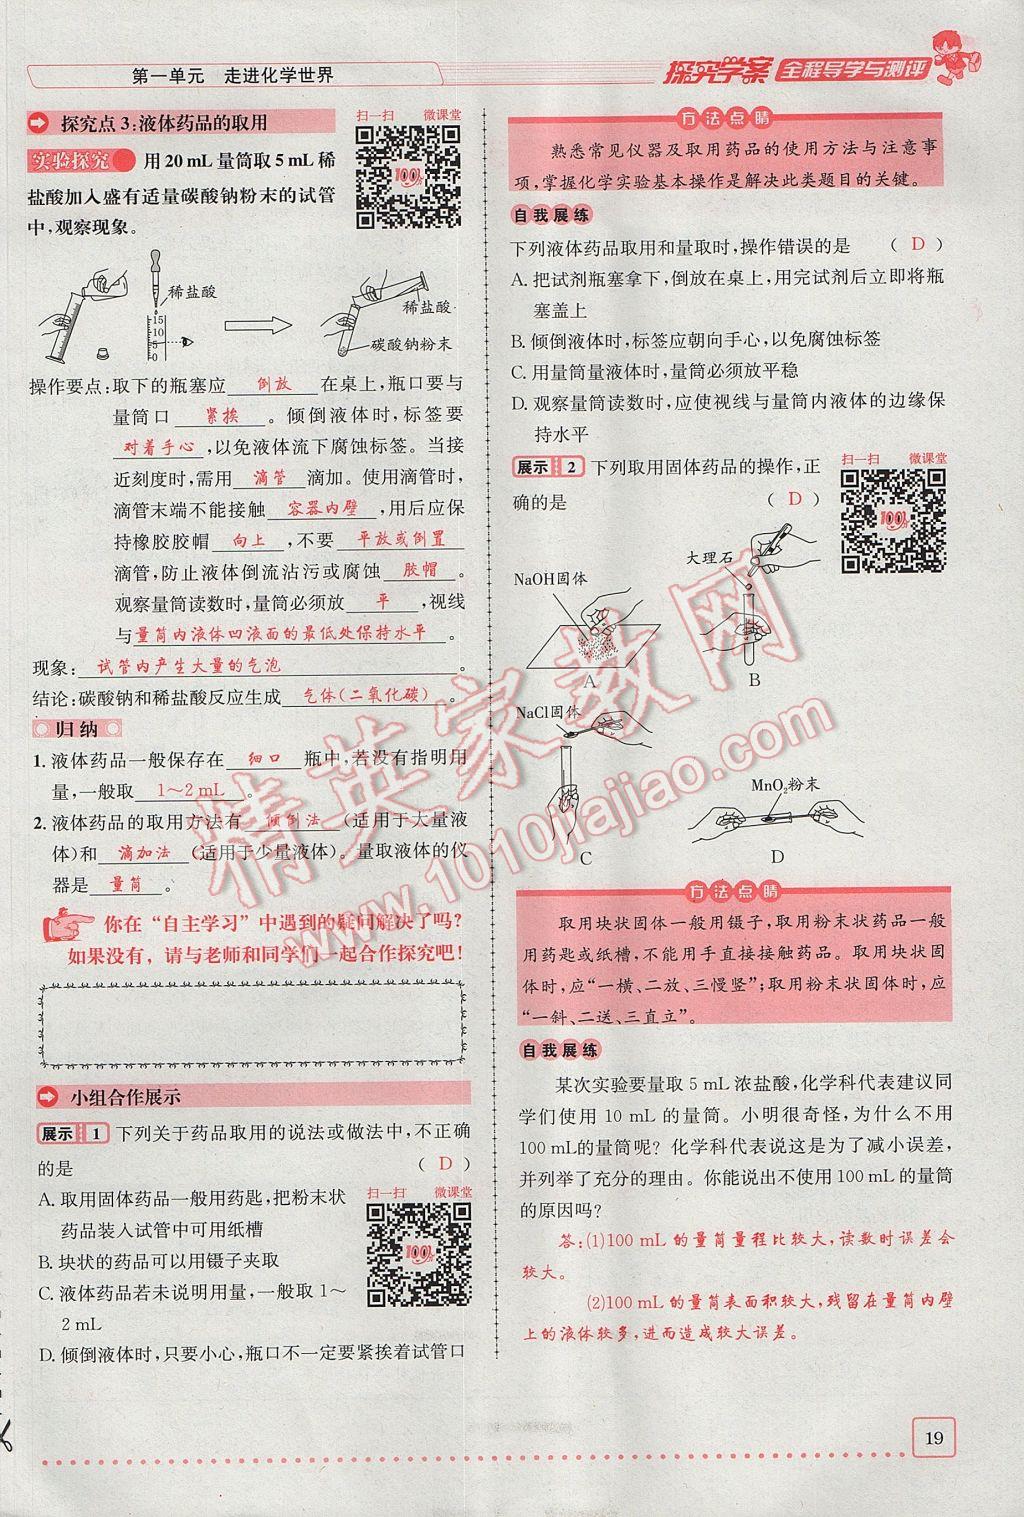 第一单元　走进化学世界
探究学案 全程导学与测评
探究点3:液体药品的取用
扫一扫　微课堂
实验探究　用20 mL量筒取5 mL稀
盐酸加入盛有适量碳酸钠粉末的试管
中,观察现象。
稀盐酸
15
10
5
0
稀盐酸
碳酸钠粉末
操作要点:取下的瓶塞应 倒放 在桌上,瓶口要与
量筒口 紧挨 。倾倒液体时,标签要
对着手心 ,以免液体流下腐蚀标签。当接
近刻度时,需用 滴管 滴加。使用滴管时,
滴管末端不能接触 容器内壁 ,用后应保
持橡胶胶帽 向上 ,不要 平放或倒置
滴管,防止液体倒流沾污或腐蚀 胶帽 。
观察量筒读数时,量筒必须放 平 ,视线
与 量筒内液体凹液面的最低处保持水平 。
现象: 试管内产生大量的气泡 。
结论:碳酸钠和稀盐酸反应生成 气体(二氧化碳) 。
归纳
1. 液体药品一般保存在 细口 瓶中,若没有指明用
量,一般取 1～2 mL 。
2. 液体药品的取用方法有 倾倒法 (适用于大量液
体)和 滴加法 (适用于少量液体)。量取液体的仪
器是 量筒 。
你在“自主学习”中遇到的疑问解决了吗?
如果没有,请与老师和同学们一起合作探究吧!
小组合作展示
展示 1　下列关于药品取用的说法或做法中,不正确
的是　( D )
A. 取用固体药品一般用药匙,把粉末状
药品装入试管中可用纸槽
B. 块状的药品可以用镊子夹取
C. 液体药品若未说明用量,一般取1～
2 mL
D. 倾倒液体时,只要小心,瓶口不一定要紧挨着试管口
扫一扫　微课堂
方法点睛
熟悉常见仪器及取用药品的使用方法与注意事
项,掌握化学实验基本操作是解决此类题目的关键。
自我展练
下列液体药品取用和量取时,操作错误的是　( D )
A. 把试剂瓶塞拿下,倒放在桌上,用完试剂后立即将瓶
塞盖上
B. 倾倒液体时,标签应朝向手心,以免腐蚀标签
C. 用量筒量液体时,量筒必须放平稳
D. 观察量筒读数时,应使视线与量筒内液体的边缘保
持水平
展示 2　下列取用固体药品的操作,正
确的是　( D )
扫一扫　微课堂
NaOH固体
大理石
A
B
NaCl固体
MnO₂粉末
C
D
方法点睛
取用块状固体一般用镊子,取用粉末状药品一般
用药匙或纸槽,不能用手直接接触药品。取用块状固
体时,应“一横、二放、三慢竖”;取用粉末状固体时,应
“一斜、二送、三直立”。
自我展练
某次实验要量取5 mL浓盐酸,化学科代表建议同
学们使用10 mL的量筒。小明很奇怪,为什么不用
100 mL的量筒呢?化学科代表说这是为了减小误差,
并列举了充分的理由。你能说出不使用100 mL的量筒
的原因吗?
答:(1)100 mL的量筒量程比较大,读数时误差会
较大。
(2)100 mL的量筒表面积较大,残留在量筒内壁
上的液体较多,进而造成较大误差。
精英家教网
www.1010jiajiao.com
19